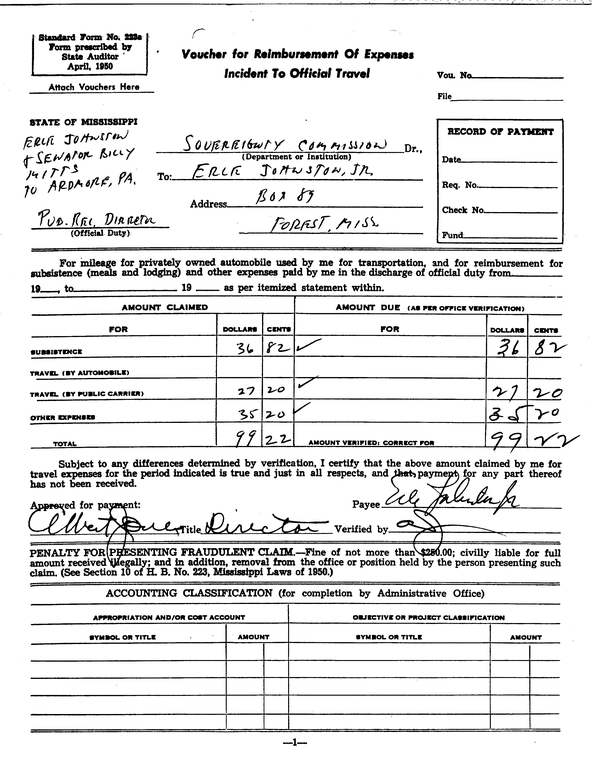 Standard Form No. 223a
Form prescribed by
State Auditor
April, 1950
Attach Vouchers Here
Voucher for Reimbursement Of Expenses
Incident To Official Travel
Vou. No.
File
STATE OF MISSISSIPPI
ERLE JOHNSTON
& SENATOR BILLY
MITTS
TO ARDMORE, PA.
PUB. REL. DIRECTOR
(Official Duty)
SOVEREIGNTY COMMISSION Dr.,
(Department or Institution)
To: ERLE JOHNSTON, JR.
Address BOX 89
FOREST, MISS
RECORD OF PAYMENT
Date
Req. No.
Check No.
Fund
For mileage for privately owned automobile used by me for transportation, and for reimbursement for
subsistence (meals and lodging) and other expenses paid by me in the discharge of official duty from
19 , to 19 as per itemized statement within.
AMOUNT CLAIMED AMOUNT DUE (AS PER OFFICE VERIFICATION)
FOR DOLLARS CENTS FOR DOLLARS CENTS
SUBSISTENCE 36 82 36 82
TRAVEL (BY AUTOMOBILE)
TRAVEL (BY PUBLIC CARRIER) 27 20 27 20
OTHER EXPENSES 35 20 35 20
TOTAL 99 22 AMOUNT VERIFIED: CORRECT FOR 99 22
Subject to any differences determined by verification, I certify that the above amount claimed by me for
travel expenses for the period indicated is true and just in all respects, and that payment for any part thereof
has not been received.
Approved for payment: Payee Erle Johnston Jr
Albert Title Director Verified by
PENALTY FOR PRESENTING FRAUDULENT CLAIM.—Fine of not more than $250.00; civilly liable for full
amount received illegally; and in addition, removal from the office or position held by the person presenting such
claim. (See Section 10 of H. B. No. 223, Mississippi Laws of 1950.)
ACCOUNTING CLASSIFICATION (for completion by Administrative Office)
APPROPRIATION AND/OR COST ACCOUNT OBJECTIVE OR PROJECT CLASSIFICATION
SYMBOL OR TITLE AMOUNT SYMBOL OR TITLE AMOUNT
—1—